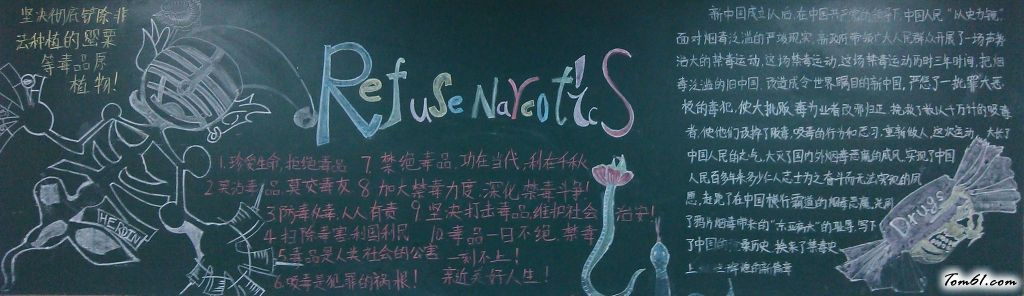 坚决彻底铲除非
法种植的罂粟
等毒品原
植物!
Refuse Narcotics
1.珍爱生命,拒绝毒品
2.莫沾毒品,莫交毒友
3.防毒反毒,人人有责
4.扫除毒害,利国利民
5.毒品是人类社会的公害
6.吸毒是犯罪的祸根!
7.禁绝毒品,功在当代,利在千秋
8.加大禁毒力度,深化禁毒斗争!
9.坚决打击毒品,维护社会治安!
10.毒品一日不绝,禁毒
一刻不止!
亲近美好人生!
HEROIN
新中国成立以后,在中国共产党的领导下,中国人民“以史为镜”
面对烟毒泛滥的严峻现实,新政府带领广大人民群众开展了一场声势
浩大的禁毒运动,这场禁毒运动历时三年时间,把烟
毒泛滥的旧中国,改造成令世界瞩目的新中国,严惩了一批罪大恶
极的毒犯,使大批贩毒为业者改邪归正,挽救了数以千万计的吸毒
者,使他们戒掉了吸毒的行为和恶习,重新做人,这次运动,大长了
中国人民的志气,大灭了国内外烟毒恶魔的威风,实现了中国
人民百多年来多少仁人志士为之奋斗而无法实现的
愿,赶跑了在中国横行霸道的烟毒恶魔,洗刷
了鸦片烟毒带来的“东亚病夫”的耻辱,写下
了中国禁毒历史,换来了禁毒史
上的新篇章
Drugs
Tom61.com